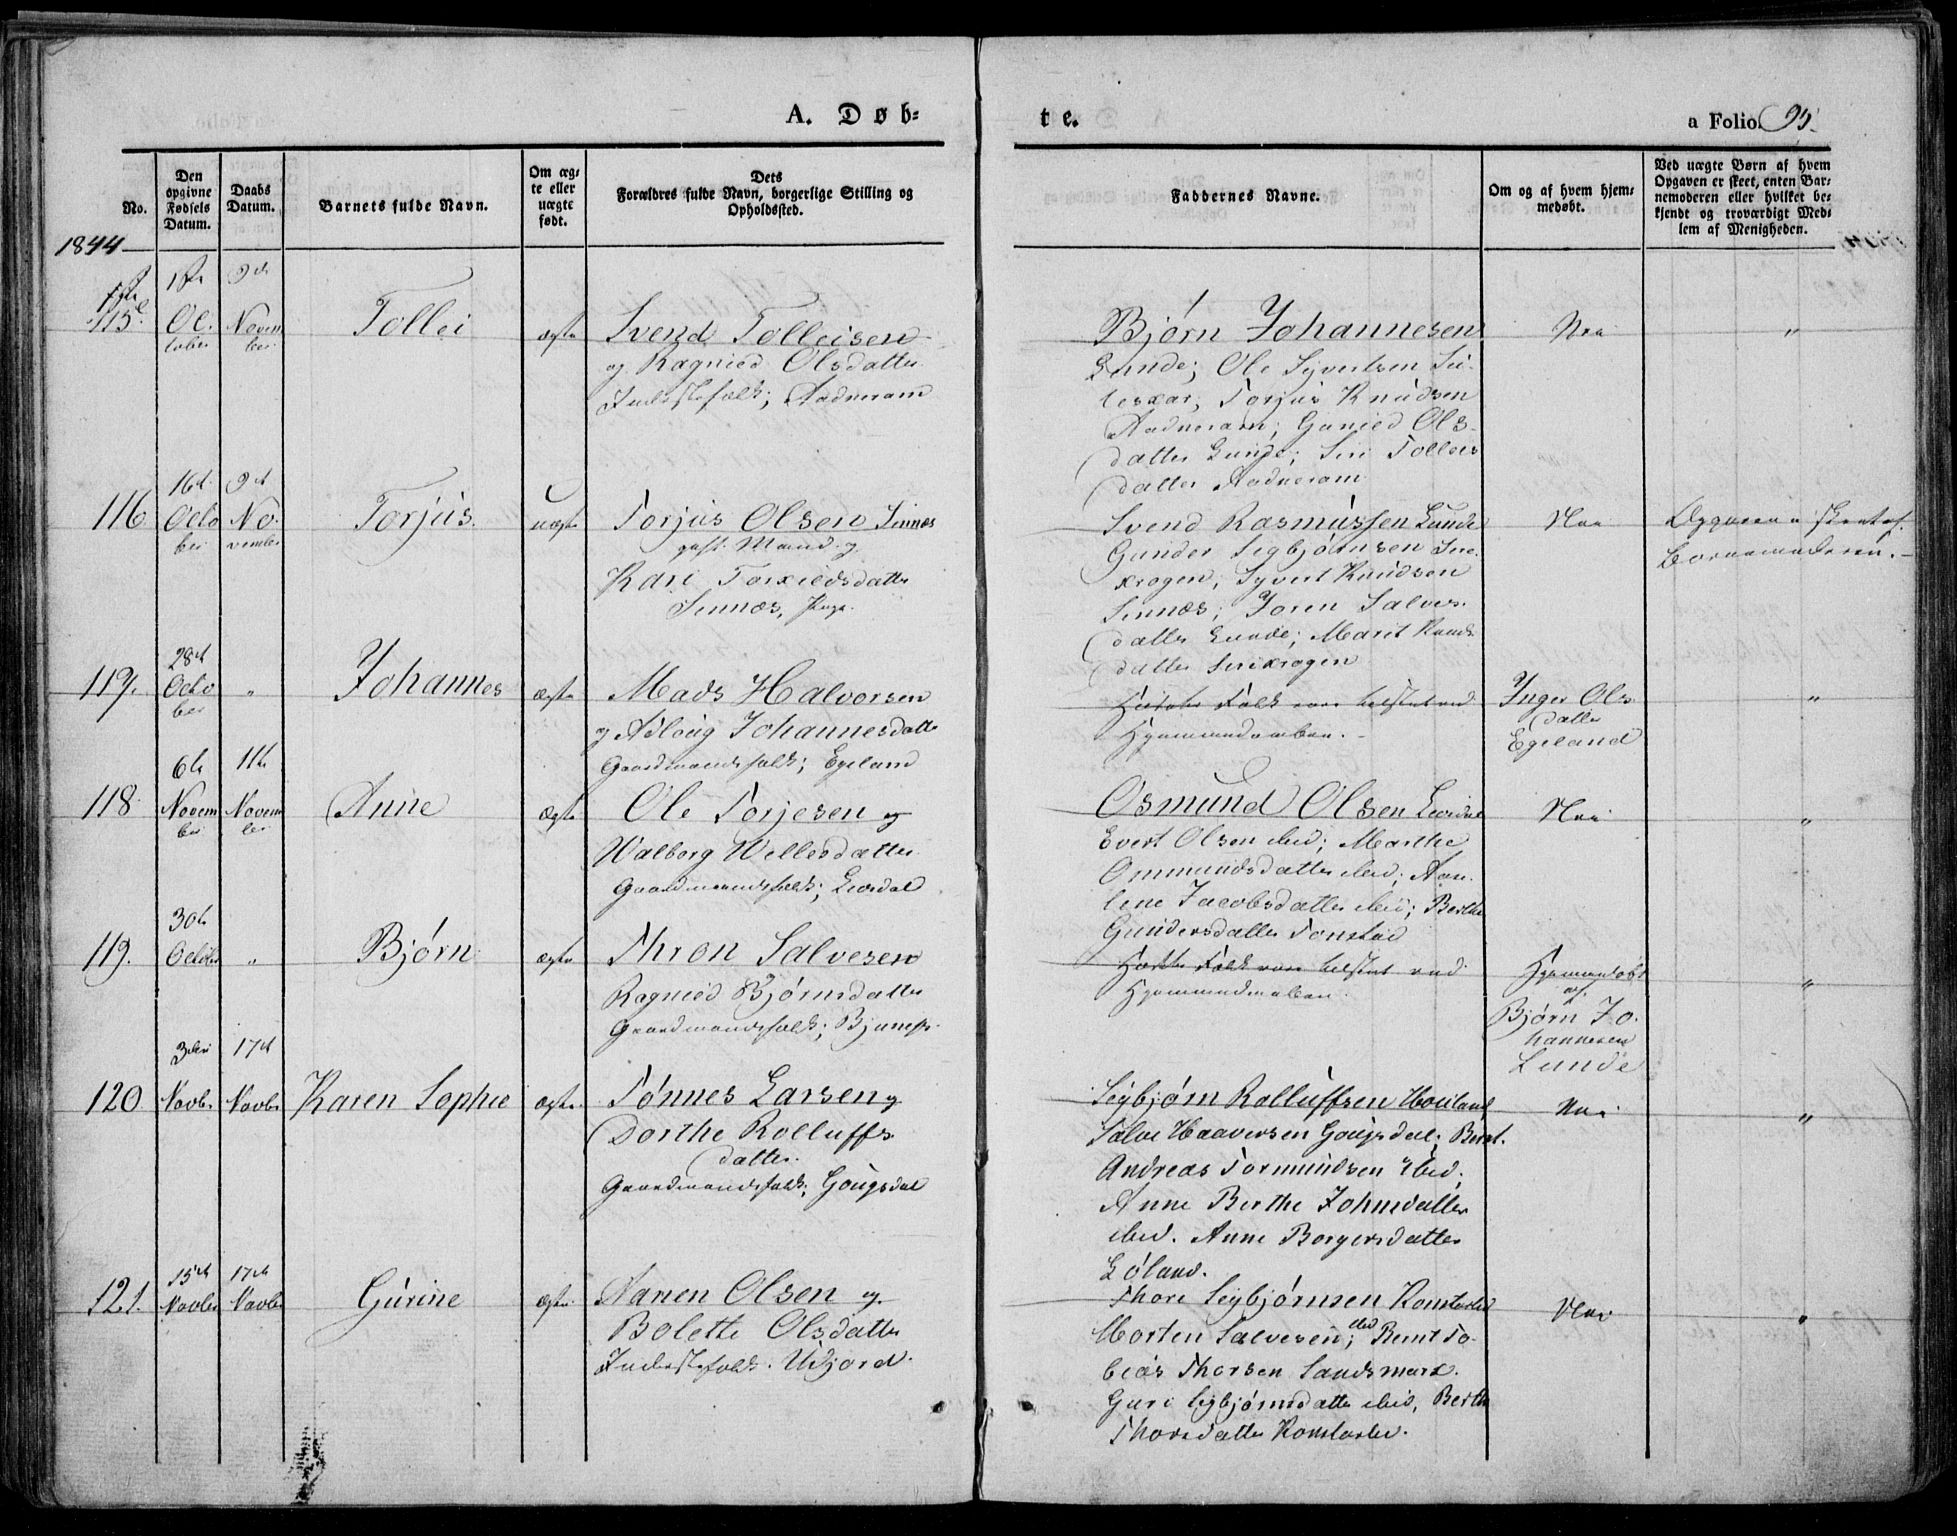 A. Døb=
te.
a Folio. 95.
No.
Den
opgivne
Fødsels
Datum.
Daabs
Datum.
Barnets fulde Navn.
Om æg=
te eller
uægte
født.
Dets
Forældres fulde Navn, borgerlige Stilling og
Opholdssted.
Faddernes Navne.
Om og af hvem hjem=
medøbt.
Ved uægte Børn af hvem
Opgaven er skeet, enten Bar=
nemoderen eller hvilket be=
kjendt og troværdigt Med=
lem af Menigheden.
1844
115
Oc.
tober
9de
Novem
ber
Tollei
ægte
Svend Tolleisen
og Ragnied Olsdatter
Inderstefolk; Aadneram
Bjørn Johannesen
Lunde; Ole Syvertsen Su-
leskar; Torjus Knudsen
Aadneram; Gunied Ols-
datter Lunde; Siri Tolleis
datter Aadneram
Nei
"
116
16de
Octo
ber
9de
No.
vember
Torjus.
uægte
Torjus Olsen Sinnes
gift Mand og
Kari Torkieldsdatter
Sinnes, Pige.
Svend Rasmussen Lunde
Gunder Sigbjørnsen Sire
krogen; Syvert Knudsen
Sinnes; Joren Salves.
datter Lunde; Marit Knuds
datter Sirekrogen
Nei
Opgaven skeet af
Barnemoderen. -
119.
28de
Octo
ber
"
Johannes
ægte
Mads Halvorsen
og Asloug Johannesdatter
Gaardmandsfolk; Egeland
Folk vare tilstede ved
Hjemmedaaben. -
Inger Ols
datter
Egeland
"
118
6te
Novem
ber
11te
Novem
ber
Anne
ægte
Ole Torjesen og
Walborg Wellesdatter
Gaardmandsfolk; Liordal
Osmund Olsen Liordal
Evert Olsen ibid; Marthe
Ommundsdatter ibid; Aan.
line Jacobsdatter ibid; Berthe
Gundersdatter Tonstad
Nei
"
119.
30te
October
"
Bjørn
ægte
Thron Salvesen
Ragnied Bjørnsdatter
Gaardmandsfolk;
Folk vare tilstede ved
Hjemmedaaben.
Hjemmedøbt
af
Bjørn Jo.
hannesen
Lunde
"
120
3die
Novbr
17de
Novbr
Karen Sophie
ægte
Tønnes Larsen og
Dorthe Rolluffs
datter.
Gaardmandsfolk; Gougsdal
Sigbjørn Rolluffsen Houland
Salve Haaversen Gougsdal; Bernt.
Andreas Tormundsen ibid;
Anne Berthe Johnsdatter
ibid. Anne Borgersdatter
Løland.
Nei
"
121.
15de
Novbr
17de
Novbr
Gurine
ægte
Aanen Olsen og
Bolette Olsdatter
Inderstefolk. Udjord.
Thore Sigbjørnsen Komstøl
Morten Salvesen ibid; Bernt To-
bias Thorsen Sandsmark.
Guri Sigbjørnsdatter ibid, Berthe
Thorsdatter
Nei
"